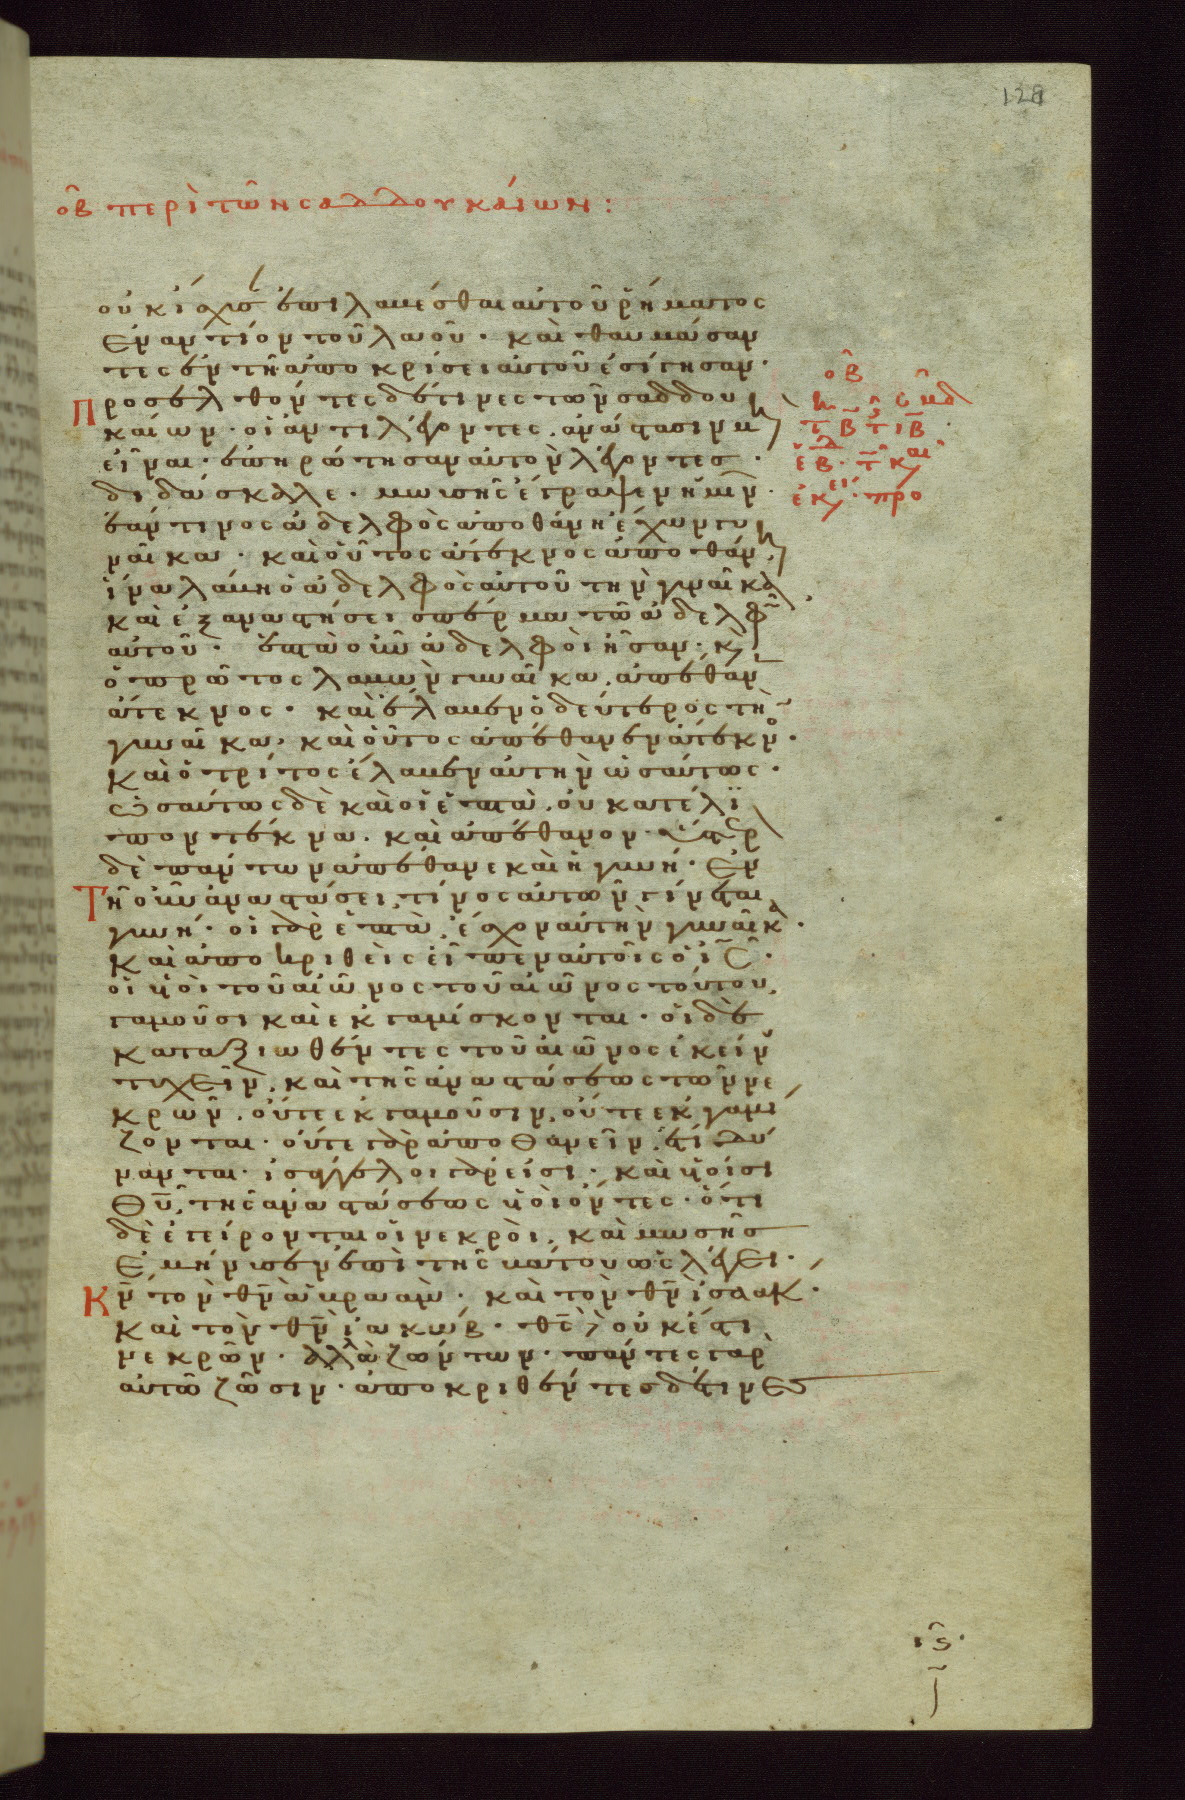 128
οβ περὶ τῶν σαδδουκαίων:
οὐκ ἴσχυσ ἐπιλαμέσθαι αὐτοῦ ῥήματος
ἐναντίον τοῦ λαοῦ. καὶ θαυμάσαν
τες ἐν τῆ ἀποκρίσει αὐτοῦ ἐσίγησαν.
Προσελθόντες δέ τινες τῶν σαδδου
καίων. οἱ ἀντιλέγοντες. ἀνάστασιν μὴ
εἶναι. ἐπηρώτησαν αὐτὸν λέγοντες.
διδάσκαλε. μωσῆς ἔγραψεν ἡμῖν.
ἐάν τινος ἀδελφὸς ἀποθάνη ἔχων γυ
ναῖκα. καὶ οὗτος ἄτεκνος ἀποθάνη
ἵνα λάβη ὁ ἀδελφὸς αὐτοῦ τὴν γυναῖκα
καὶ ἐξαναστήσει σπέρμα τῶ ἀδελφῶ
αὐτοῦ. ἑπτὰ οὖν ἀδελφοὶ ἦσαν. κ
ὁ πρῶτος λαβὼν γυναῖκα. ἀπέθαν
ἄτεκνος. καὶ ἔλαβεν ὁ δεύτερος τὴν
γυναῖκα. καὶ οὗτος ἀπέθανεν ἄτεκνο.
καὶ ὁ τρίτος ἔλαβεν αὐτὴν ὡσαύτως.
ὡσαύτως δὲ καὶ οἱ ἑπτὰ. οὐ κατέλι
πον τέκνα. καὶ ἀπέθανον. ὕστερ
δὲ πάντων ἀπέθανε καὶ ἡ γυνή. ἐν
Τῆ οὖν ἀναστάσει, τίνος αὐτῶν γίνεται
γυνή. οἱ γὰρ ἑπτὰ ἔσχον αὐτὴν γυναῖκα.
καὶ ἀποκριθεὶς εἶπεν αὐτοῖς ὁ ις.
οἱ υἱοὶ τοῦ αἰῶνος τοῦ αἰῶνος τούτου,
γαμοῦσι καὶ ἐκγαμίσκονται. οἱ δὲ
καταξιωθέντες τοῦ αἰῶνος ἐκείν
τυχεῖν, καὶ τῆς ἀναστάσεως τῶν νε
κρῶν. οὔτε ἐκγαμοῦσιν, οὔτε ἐκγαμί
ζονται. οὔτε γὰρ ἀποθανεῖν ἔτι δύ
νανται. ἰσάγγελοι γάρ εἰσι. καὶ υἱοί εἰσι
θυ, τῆς ἀναστάσεως υἱοὶ ὄντες. ὅτι
δὲ ἐγείρονται οἱ νεκροὶ, καὶ μωσῆς
ἐμήνυσεν ἐπὶ τῆς βάτου ὡς λέγει.
Κν τὸν θν ἀβραὰμ. καὶ τὸν θν ἰσαακ.
καὶ τὸν θν ἰακώβ. θς οὐκ ἔστι
νεκρῶν. ἀλλὰ ζώντων. πάντες γὰρ
αὐτῶ ζῶσιν. ἀποκριθέντες δέ τινες
οβ
ις